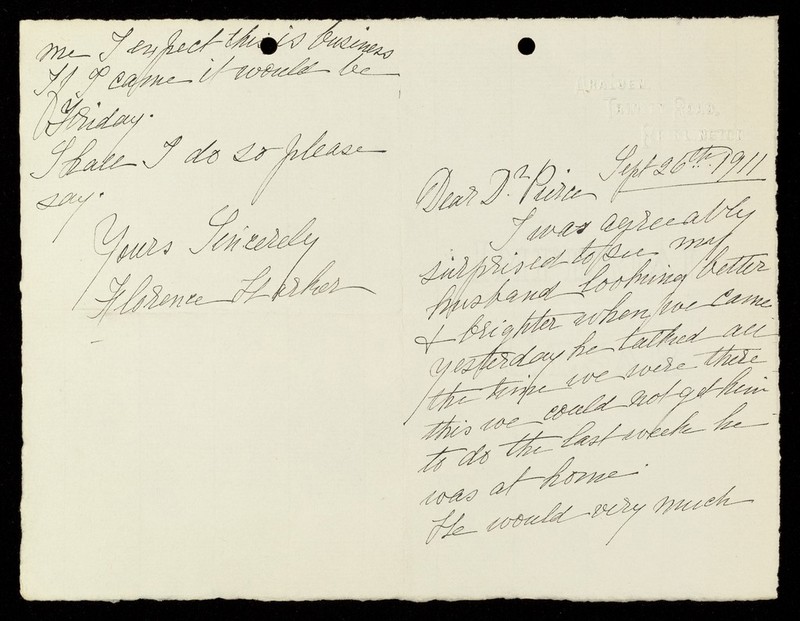 Sept 26th 1911
Dear Dr. Pierce
I was agreeably
surprised to see my
husband looking better
& brighter when we came
yesterday he talked all
the time we were there
this we could not get him
to do the last week he
was at home.
He would very much
me I expect this is business
If I came it would be
Friday.
Shall I do so please
say.
Yours Sincerely
Florence Harker